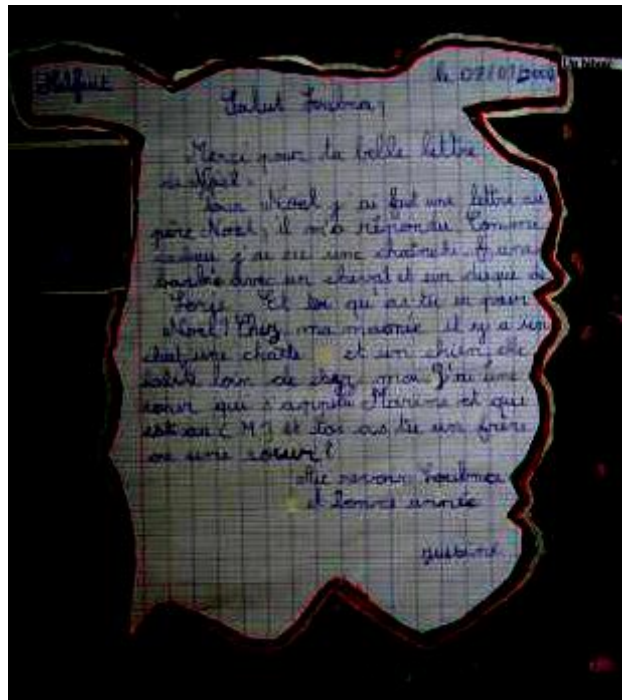 Helfaut le 07/01/2002
Salut Loubna,
Merci pour ta belle lettre
de Noël.
Pour Noël j'ai fait une lettre au
père Noël, il m'a répondu Comme
cadeau j'ai eu une chaîne hi-fi une
barbie avec un cheval et un disque de
Lorie. Et toi qu'as tu eu pour
Noël? Chez ma mamie il y a un
chat, une chatte et un chien, elle
habite loin de chez moi. J'ai une
soeur qui s'appelle Marine et qui
est au CM1 et toi as tu un frère
ou une soeur?
Au revoir Loubna
et bonne année
justine